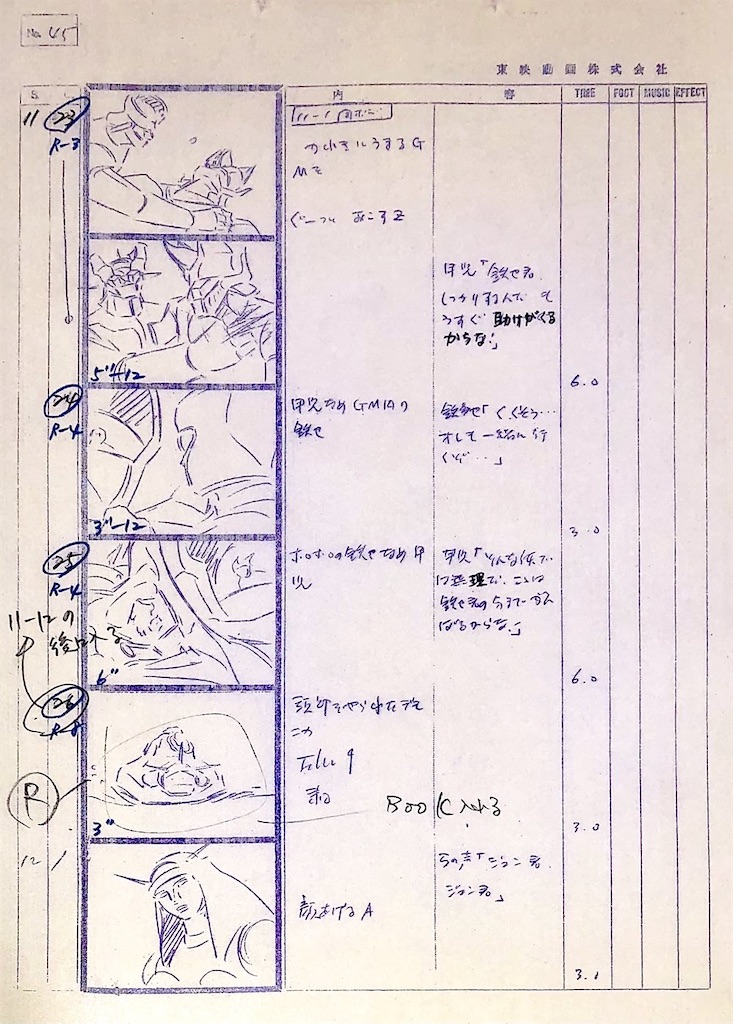 No. 45
東映動画株式会社
S. C. 内容 TIME FOOT MUSIC EFFECT
11 23
R-3
するG
Mを
ぐーっと おこすZ
甲児「鉄也君
しっかりするんだ も
うすぐ 助けがくる
からな!」
5"-12
6.0
24
R-4
甲児なめ GM内の
鉄也
鉄也「くくそう…
オレも一緒に行
くぞ…」
3"-12
3.0
25
R-4
ボロボロの鉄也なめ 甲
児
甲児「そんな体で
は無理だ、ここは
鉄也君の分までがん
ばるからな」
11-12の
後に入る
6"
6.0
26
R-8
頭部をやられた
R
BOOK入れる
3"
3.0
12 1
の声「ジュン君
ジュン君」
顔あげるA
3.1